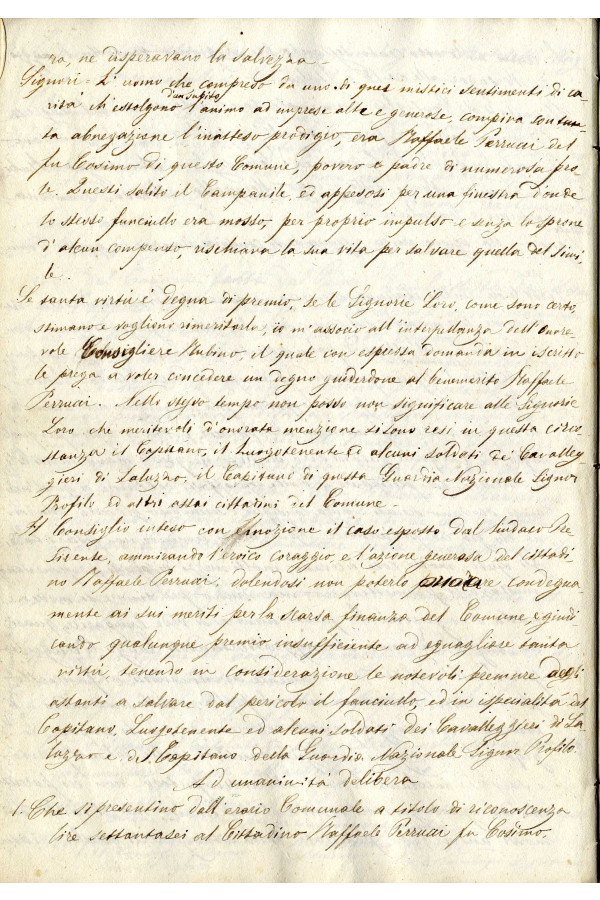 ra, ne disperavano la salvezza.
Signori = L'uomo che compreso da uno di quei mistici sentimenti di ca
d'un subito
rità ch'estolgono l'animo ad imprese alte e generose, compiva con tan
ta abnegazione l'inatteso prodigio, era Raffaele Perrucci del
fu Cosimo di questo Comune, povero e padre di numerosa pro
le. Questi salito il Campanile, ed appesosi per una finestra d'onde
lo stesso fanciullo era mosso, per proprio impulso e senza lo sprone
d'alcun compenso, rischiava la sua vita per salvare quella del simi,
le.
Se tanta virtù è degna di premio, se le Signorie Loro, come sono certo,
stimano e vogliono rimeritarla, io m'associo all'interpellanza dell'Onore
vole Consigliere Rubino, il quale con espressa domanda in iscritto
le prega a voler concedere un degno guiderdone al benemerito Raffaele
Perrucci. Nello stesso tempo non posso non significare alle Signorie
Loro che meritevoli d'onorata menzione si sono resi in questa circo
stanza il Capitano, il Luogotenente ed alcuni soldati de' Cavalleg
gieri di Saluzzo, il Capitano di questa Guardia Nazionale Signor
Profilo ed altri assai cittadini del Comune.
Il Consiglio inteso con emozione il caso esposto dal Sindaco Pre
sidente, ammirando l'eroico coraggio, e l'azione generosa del cittadi
no Raffaele Perrucci, dolendosi non poterlo condegna
mente ai sui meriti per la scarsa finanza del Comune, e giudi
cando qualunque premio insufficiente ad eguagliare tanta
virtù, tenendo in considerazione le notevoli premure degli
astanti a salvare dal pericolo il fanciullo, ed in ispecialità del
Capitano, Luogotenente ed alcuni soldati dei Cavalleggieri di Sa
luzzo e del Capitano della Guardia Nazionale Signor Profilo.
Ad unanimità delibera
1. Che si presentino dall'erario Comunale a titolo di riconoscenza
lire settantasei al Cittadino Raffaele Perrucci fu Cosimo.